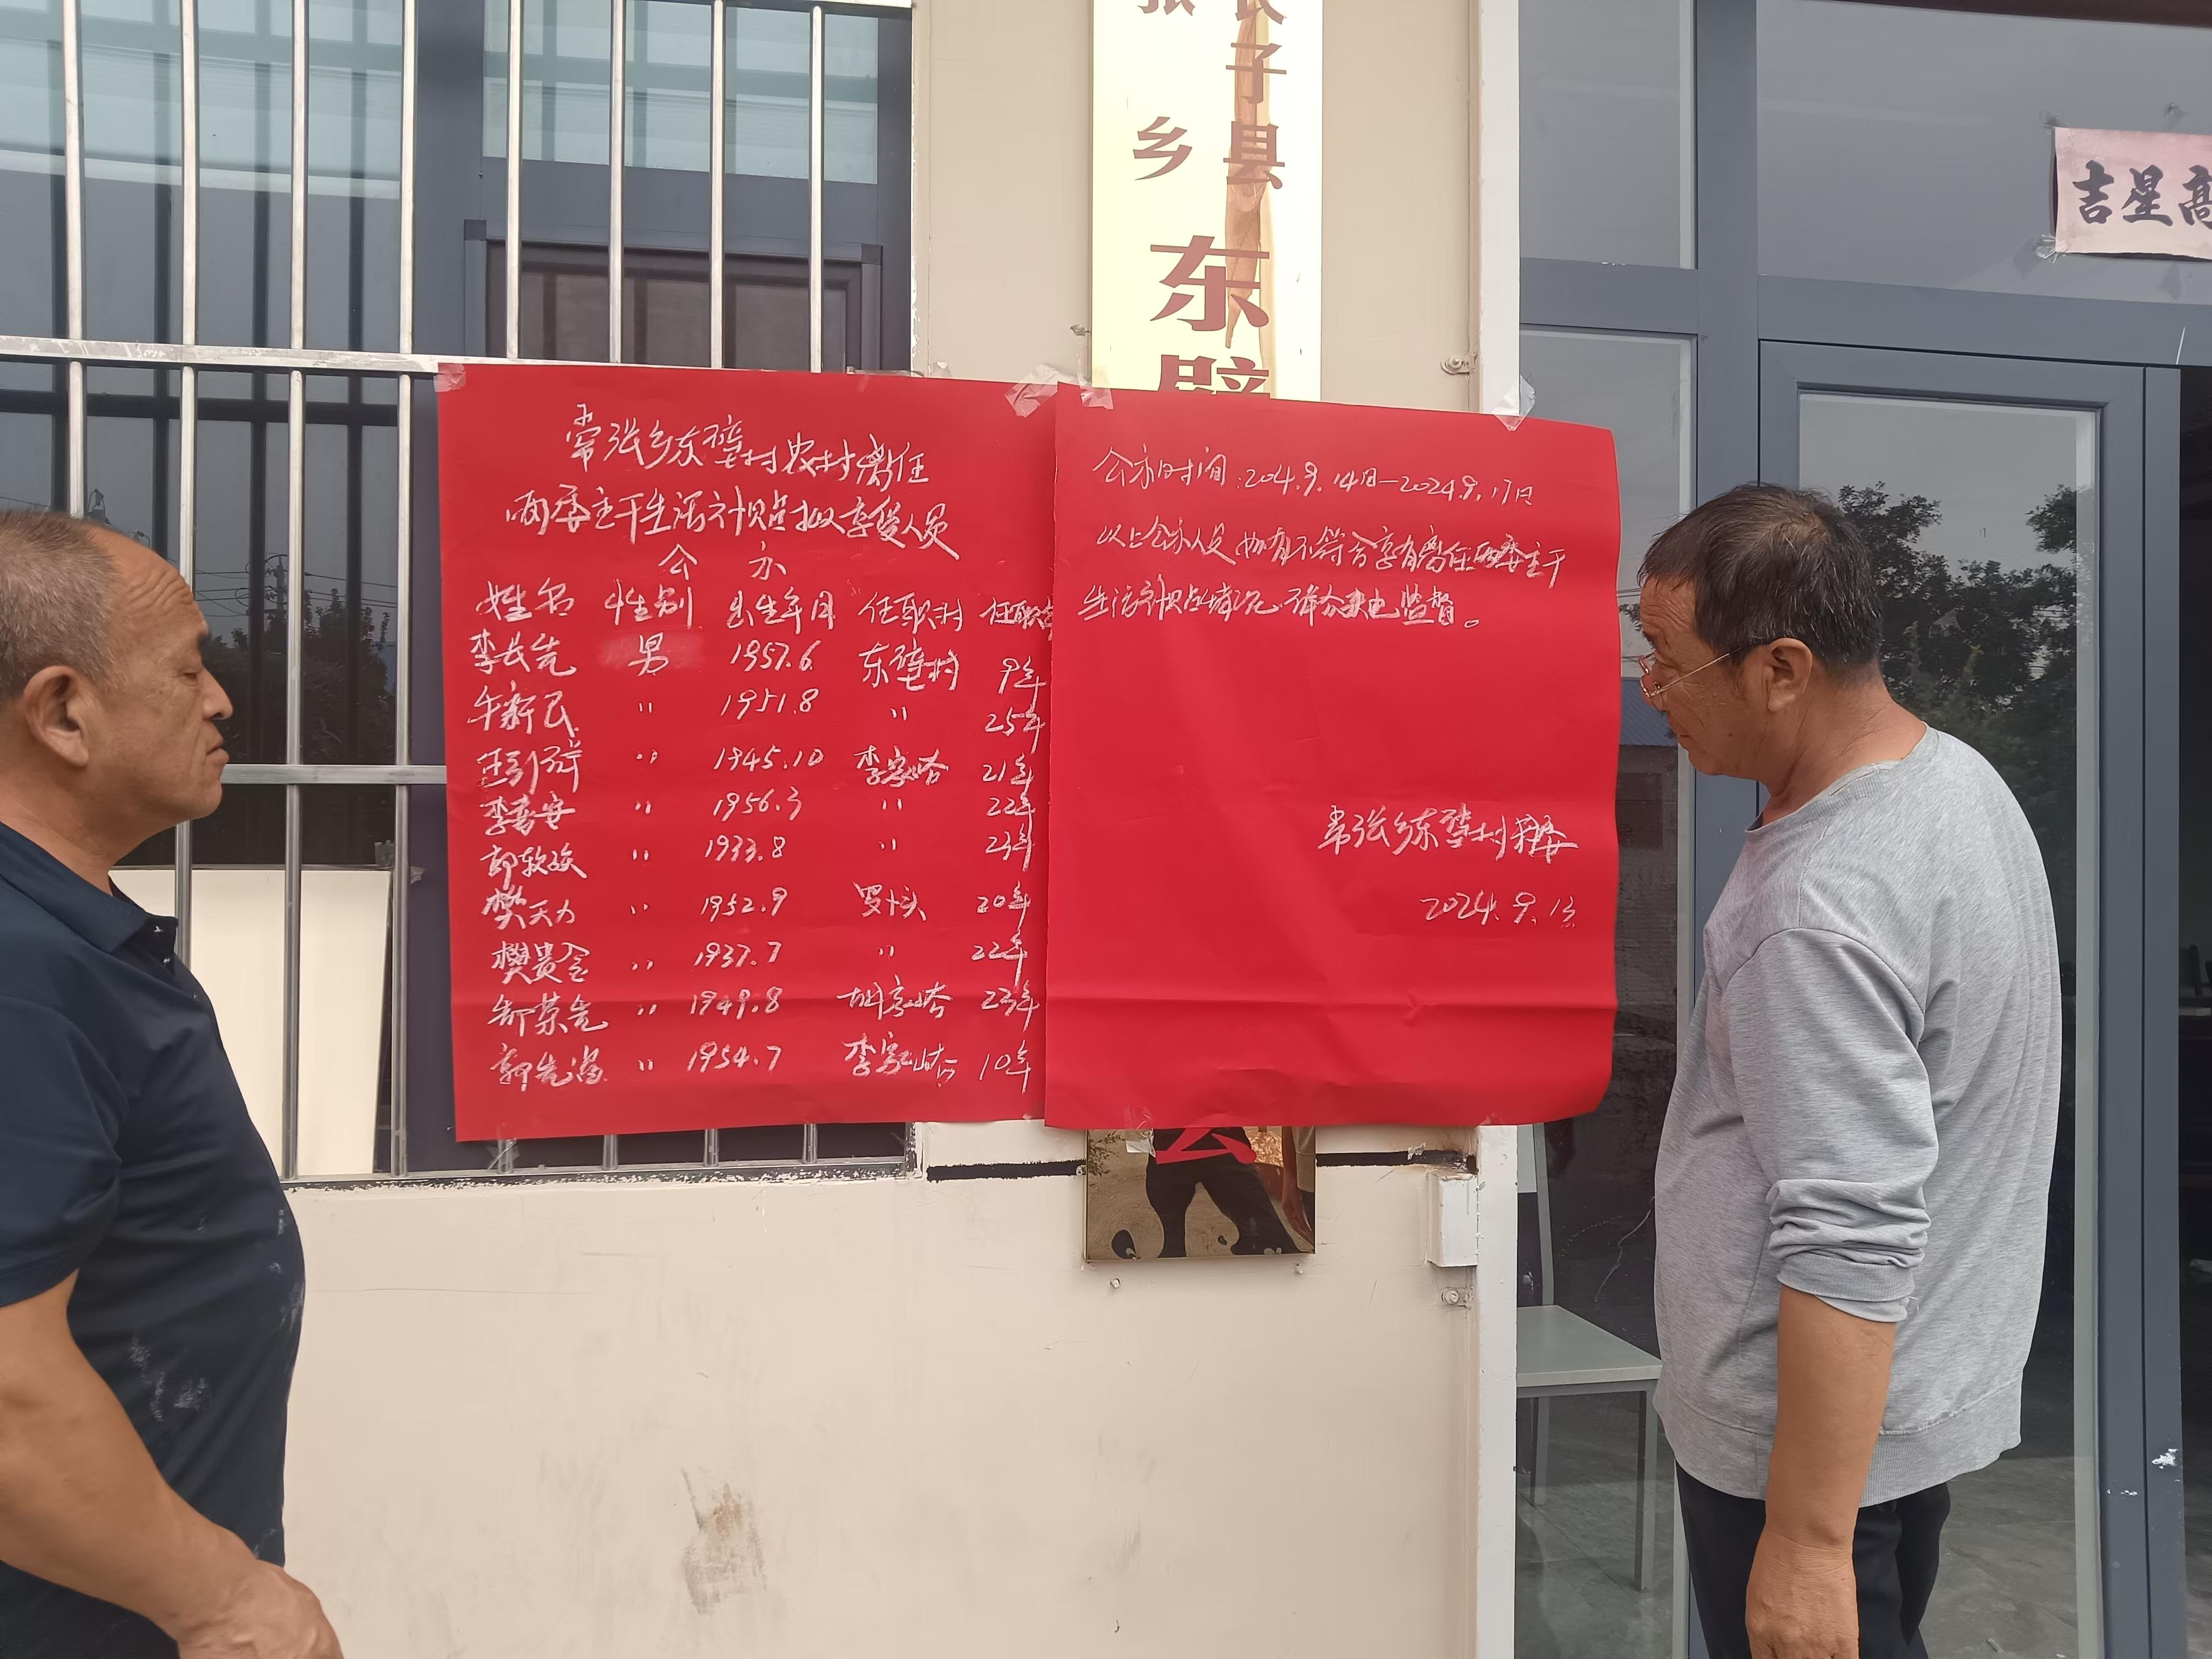 长子县
张乡
东壁
吉星高
常张乡东壁村农村离任
两委主干生活补贴拟享受人员
公示
姓名 性别 出生年月 任职村 任职
李长先 男 1957.6 东壁村 9年
牛新民 " 1951.8 " 25年
" 1945.10 李家峪 21年
李喜安 " 1956.3 " 22年
" 1933.8 " 23年
樊天力 " 1952.9 罗卜头 20年
樊贵金 " 1937.7 " 22年
" 1949.8 胡家峪 23年
郭先 " 1954.7 李家峪 10年
公示时间:2024.9.14日—2024.9.17日
以上公示人员如有不符合享有离任两委主干
生活补贴情况 请公众监督。
常张乡东壁村两委
2024.9.13
会